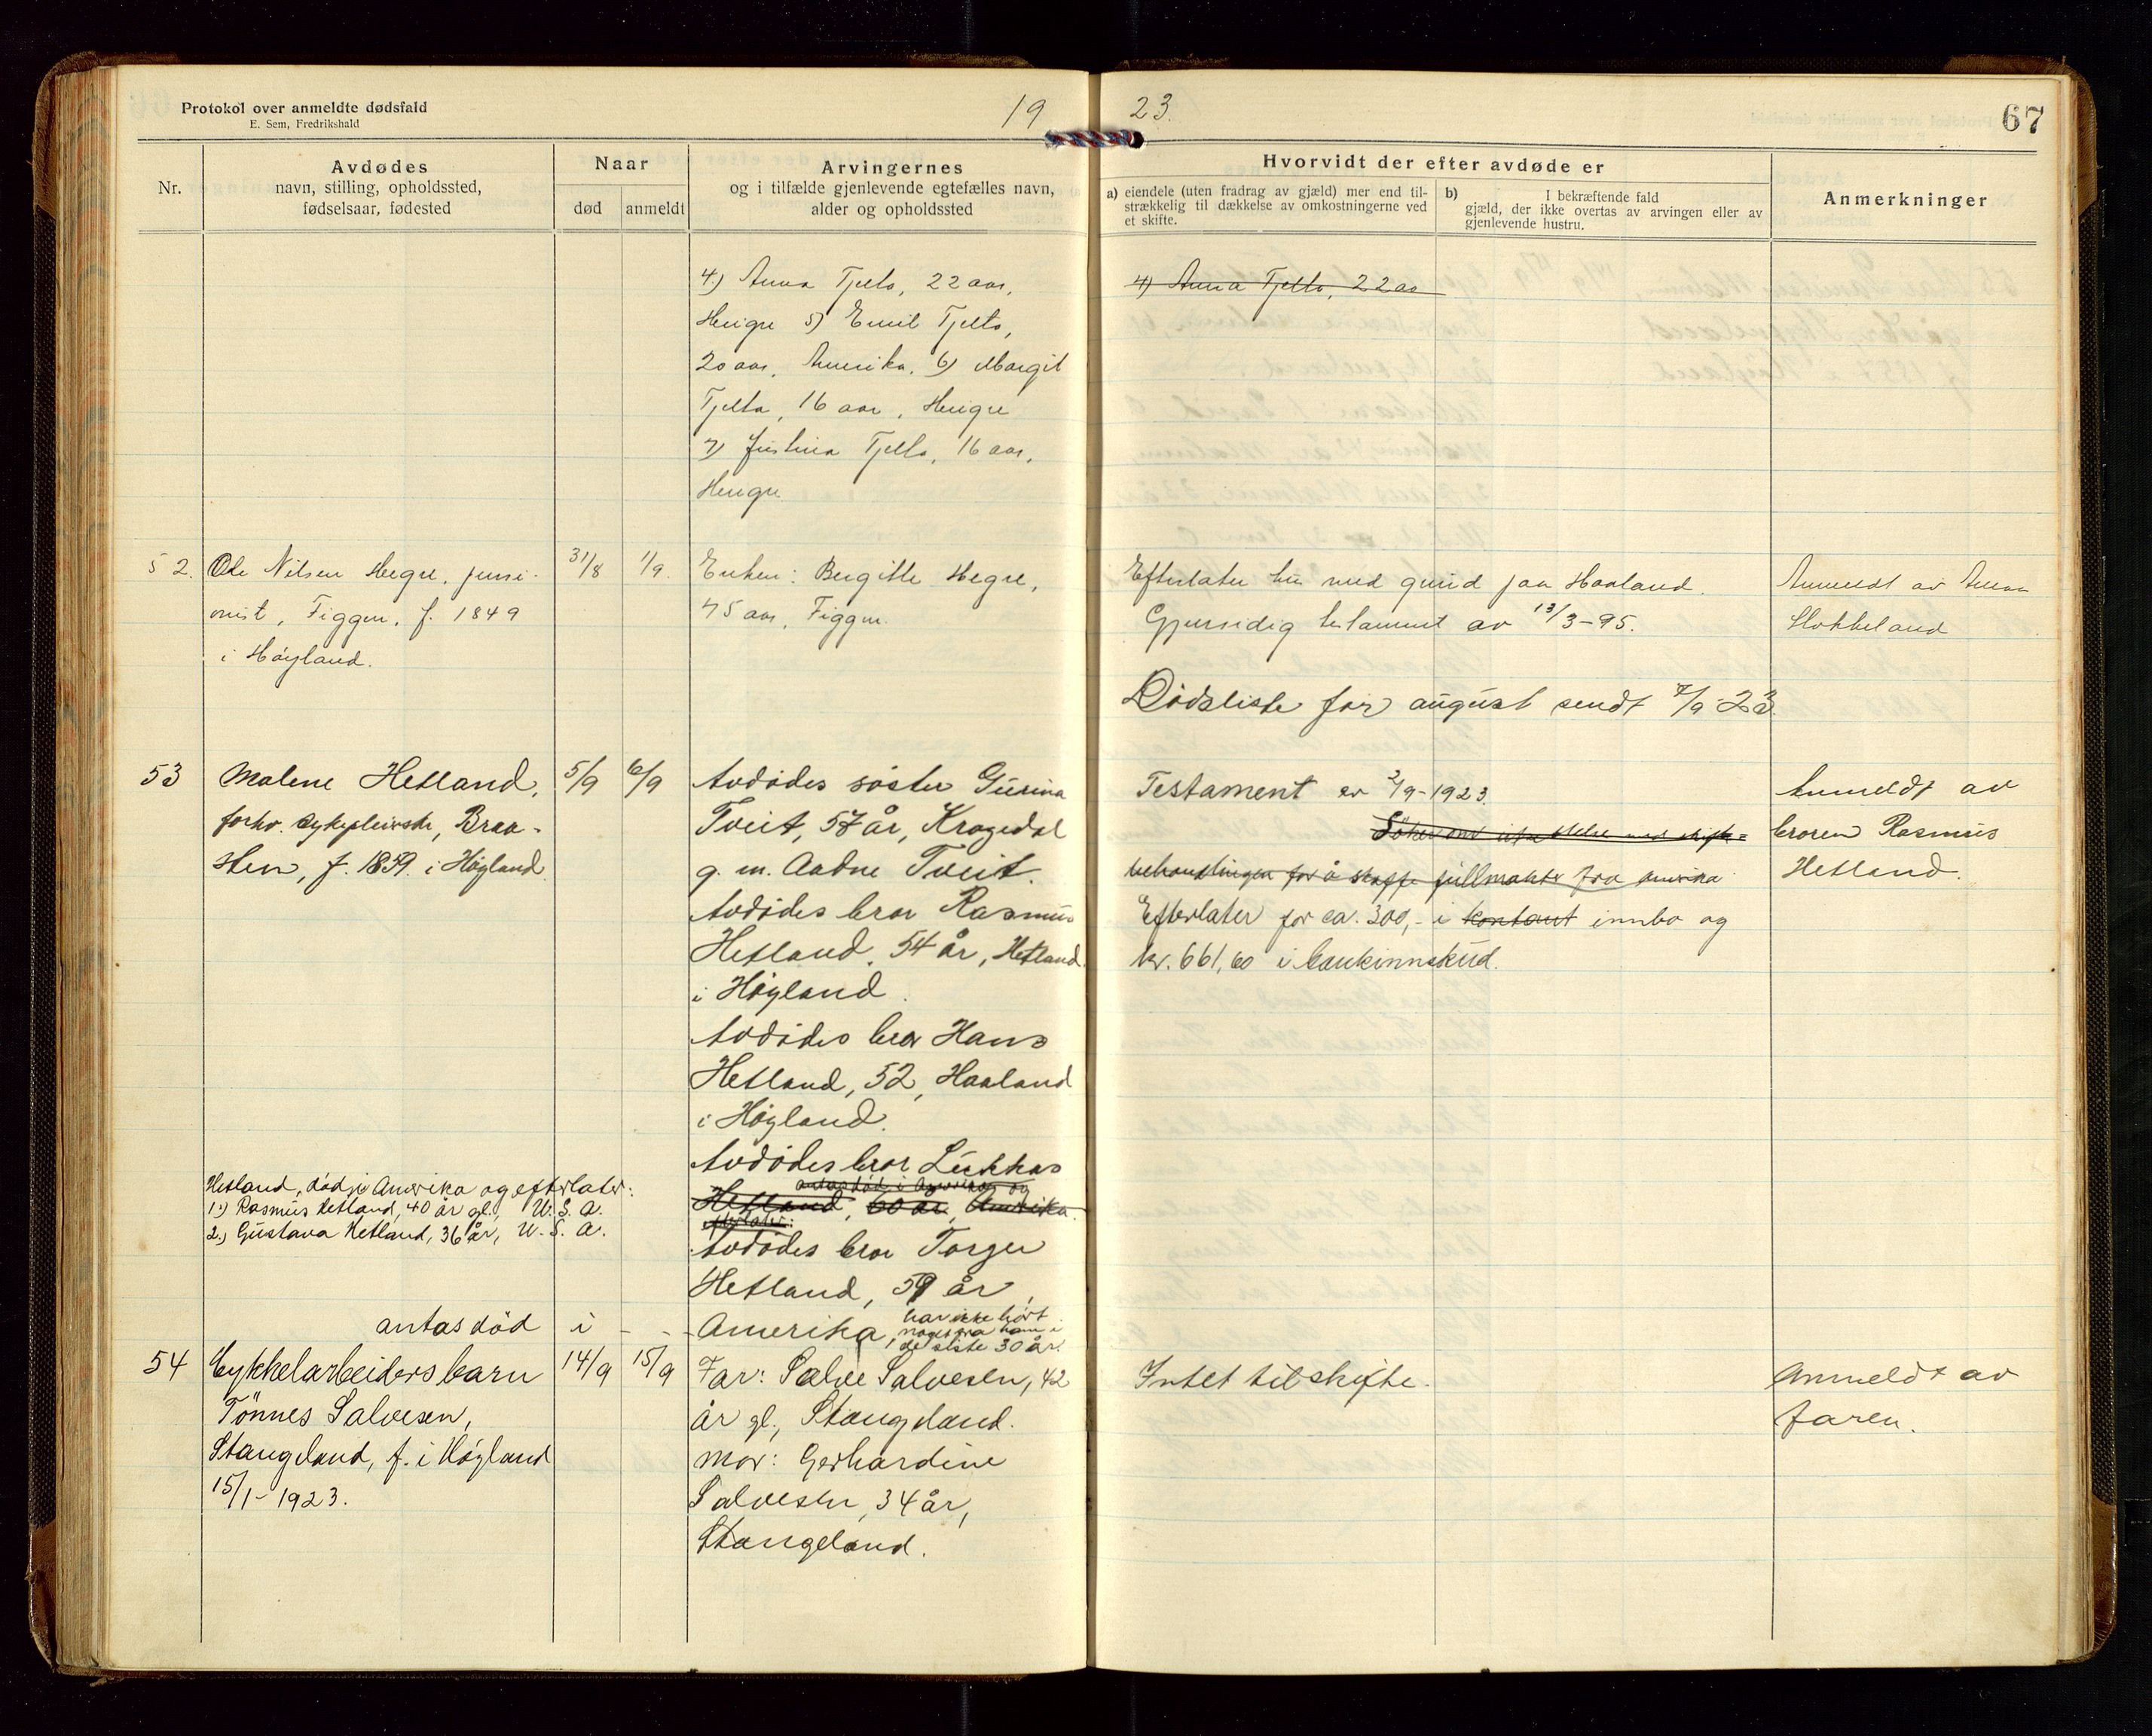 Protokol over anmeldte dødsfald
E. Sem, Fredrikshald
19
23.
67
Nr.
Avdødes
navn, stilling, opholdssted,
fødselsaar, fødested
Naar
død
anmeldt
Arvingernes
og i tilfælde gjenlevende egtefælles navn,
alder og opholdssted
Hvorvidt der efter avdøde er
a) eiendele (uten fradrag av gjæld) mer end til-
strækkelig til dækkelse av omkostningerne ved
et skifte.
b) I bekræftende fald
gjæld, der ikke overtas av arvingen eller av
gjenlevende hustru.
Anmerkninger
4.) Anna Tjelta, 22 aar,
Heigre 5) Emil Tjelta,
20 aar, Amerika. 6) Margit
Tjelta, 16 aar, Heigre
7) Justina Tjelta, 16 aar,
Heigre.
4) Anna Tjelta, 22 aa
52. Ole Nilsen Hegre, pensi-
onist, Figgen, f. 1849
i Höyland.
31/8
1/9.
Enken: Bergitte Hegre,
75 aar, Figgen.
Efterlater hus med grund paa Haaland.
Gjensidig testament av 13/3-95.
Anmeldt av
Stokkeland
Dödsliste for august sendt 7/9-23.
53 Malene Hetland,
forhv. sykepleierske, Braa-
sten, f. 1859. i Höyland.
5/9
6/9
Avdödes söster Gurina
Tveit, 57 år, Kragedal
g. m. Aadne Tveit.
Avdödes bror Rasmus
Hetland, 54 år, Hetland
i Höyland.
Avdödes bror Hans
Hetland, 52, Haaland
i Höyland.
Avdödes bror Lukkas
antas död i Amerika og
Hetland, 60 år, Amerika.
efterlater:
Hetland, död i Amerika og efterlater:
1.) Rasmus Hetland, 40 år gl., U. S. A.
2.) Gustava Hetland, 36 år, U. S. A.
Avdödes bror Torger
Hetland, 59 år,
antas död i - - - Amerika, har ikke hört
noget fra ham i
de siste 30 år.
Testament er 2/9-1923.
Söker om utsettelse med skifte-
behandlingen for å skaffe fullmakter fra Amerika
Efterlater for ca. 300,- i kontant innbo og
kr. 661,60 i bankinnskud.
Anmeldt av
broren Rasmus
Hetland.
54 Cykkelarbeiders barn
Tönnes Salvesen,
Stangeland, f. i Höyland
15/1-1923.
14/9
15/9
Far: Salve Salvesen, 42
år gl., Stangeland.
Mor: Gerhardine
Salvesen, 34 år,
Stangeland.
Intet til skifte.
Anmeldt av
faren.